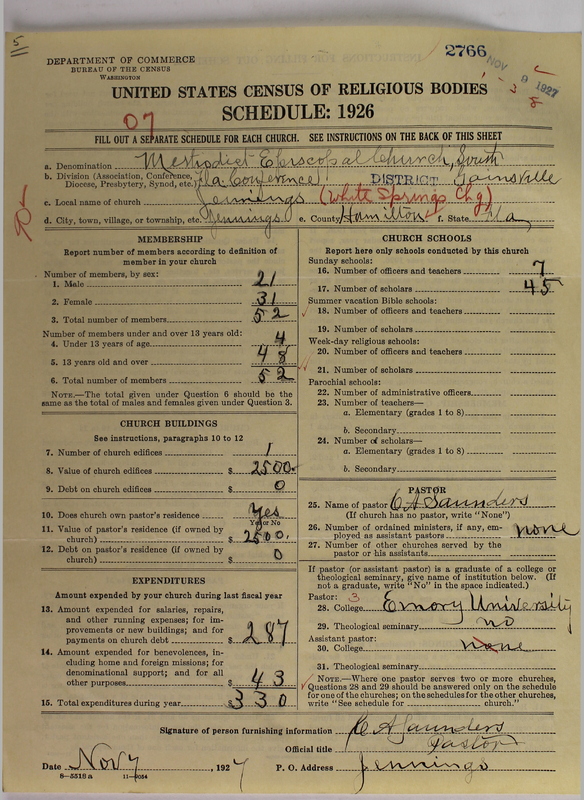 5
DEPARTMENT OF COMMERCE
BUREAU OF THE CENSUS
WASHINGTON
2766
NOV 9 1927
3
8
UNITED STATES CENSUS OF RELIGIOUS BODIES
SCHEDULE: 1926
07
FILL OUT A SEPARATE SCHEDULE FOR EACH CHURCH. SEE INSTRUCTIONS ON THE BACK OF THIS SHEET
a. Denomination Methodist Episcopal Church, South
b. Division (Association, Conference, Diocese, Presbytery, Synod, etc.) Fla Conference DISTRICT Gainsville
c. Local name of church Jennings (White Springs Chg)
d. City, town, village, or township, etc. Jennings e. County Hamilton f. State Fla
MEMBERSHIP
Report number of members according to definition of
member in your church
Number of members, by sex:
1. Male 21
2. Female 31
3. Total number of members 52
Number of members under and over 13 years old:
4. Under 13 years of age 4
5. 13 years old and over 48
6. Total number of members 52
NOTE.—The total given under Question 6 should be the
same as the total of males and females given under Question 3.
CHURCH BUILDINGS
See instructions, paragraphs 10 to 12
7. Number of church edifices 1
8. Value of church edifices $ 2500.
9. Debt on church edifices $ 0
10. Does church own pastor's residence Yes
Yes or No
11. Value of pastor's residence (if owned by
church) $ 2500.
12. Debt on pastor's residence (if owned by
church) $ 0
EXPENDITURES
Amount expended by your church during last fiscal year
13. Amount expended for salaries, repairs,
and other running expenses; for im-
provements or new buildings; and for
payments on church debt $ 287
14. Amount expended for benevolences, in-
cluding home and foreign missions; for
denominational support; and for all
other purposes $ 43
15. Total expenditures during year $ 330
CHURCH SCHOOLS
Report here only schools conducted by this church
Sunday schools:
16. Number of officers and teachers 7
17. Number of scholars 45
Summer vacation Bible schools:
18. Number of officers and teachers
19. Number of scholars
Week-day religious schools:
20. Number of officers and teachers
21. Number of scholars
Parochial schools:
22. Number of administrative officers
23. Number of teachers—
a. Elementary (grades 1 to 8)
b. Secondary
24. Number of scholars—
a. Elementary (grades 1 to 8)
b. Secondary
PASTOR
25. Name of pastor C A Saunders
(If church has no pastor, write "None")
26. Number of ordained ministers, if any, em-
ployed as assistant pastors none
27. Number of other churches served by the
pastor or his assistants
If pastor (or assistant pastor) is a graduate of a college or
theological seminary, give name of institution below. (If
not a graduate, write "No" in the space indicated.)
Pastor: 3
28. College Emory University
29. Theological seminary no
Assistant pastor:
30. College none
31. Theological seminary
NOTE.—Where one pastor serves two or more churches,
Questions 28 and 29 should be answered only on the schedule
for one of the churches; on the schedules for the other churches,
write "See schedule for church."
Signature of person furnishing information C A Saunders
Official title Pastor
Date Nov 7, 1927 P. O. Address Jennings
8—5518 a 11—9054